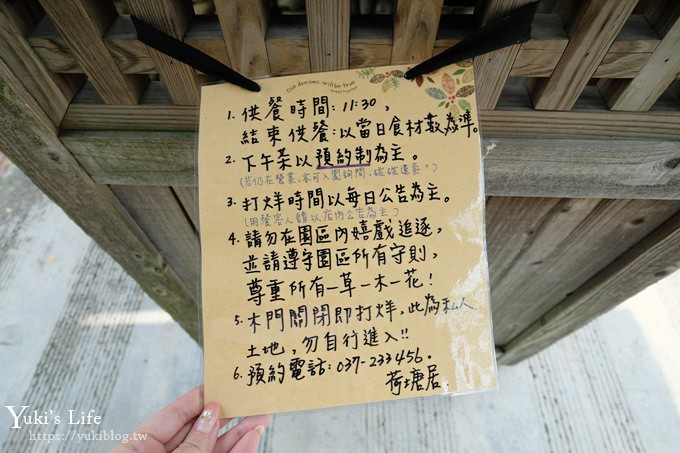 Our dreams will be true
1. 供餐時間: 11:30,
結束供餐:以當日食材數為準。
2. 下午茶以預約制為主。
(若仍在營業,亦可入園詢問,碰碰運氣^^)
3. 打烊時間以每日公告為主。
(用餐客人請以店內公告為主)
4. 請勿在園區內嬉戲追逐,
並請遵守園區所有守則,
尊重所有一草一木一花!
5. 木門關閉即打烊,此為私人
土地,勿自行進入!!
6. 預約電話: 037-233456.
荷塘居.
Yuki's Life
https://yukiblog.tw